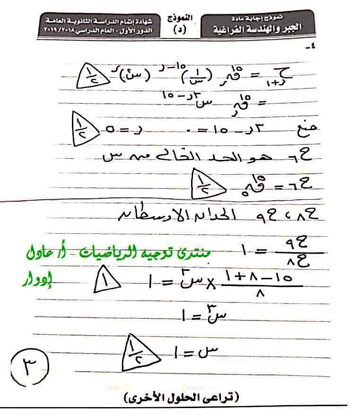 نموذج إجابة مادة
الجبر والهندسة الفراغية
النموذج
(د)
شهادة إتمام الدراسة الثانوية العامة
الدور الأول - العام الدراسى ٢٠١٨/٢٠١٩
٤-
ح ر+١ = ١٥ق ر (١/س)^١٥-ر (س٢)^ر ١/٢
= ١٥ق ر س^٣ر-١٥
ضع ٣ر - ١٥ = ٠ ر = ٥ ١/٢
ح٦ هو الحد الخالى من س
ح٦ = ١٥ق٥ ١/٢
ح٨ ، ح٩ الحدان الأوسطان
ح٩/ح٨ = ١
منتدى توجيه الرياضيات - أ/ عادل إدوار
(١٥-٨+١)/٨ × س٣ = ١ ١
س٣ = ١
س = ١ ١/٢
٣
(تراعى الحلول الأخرى)